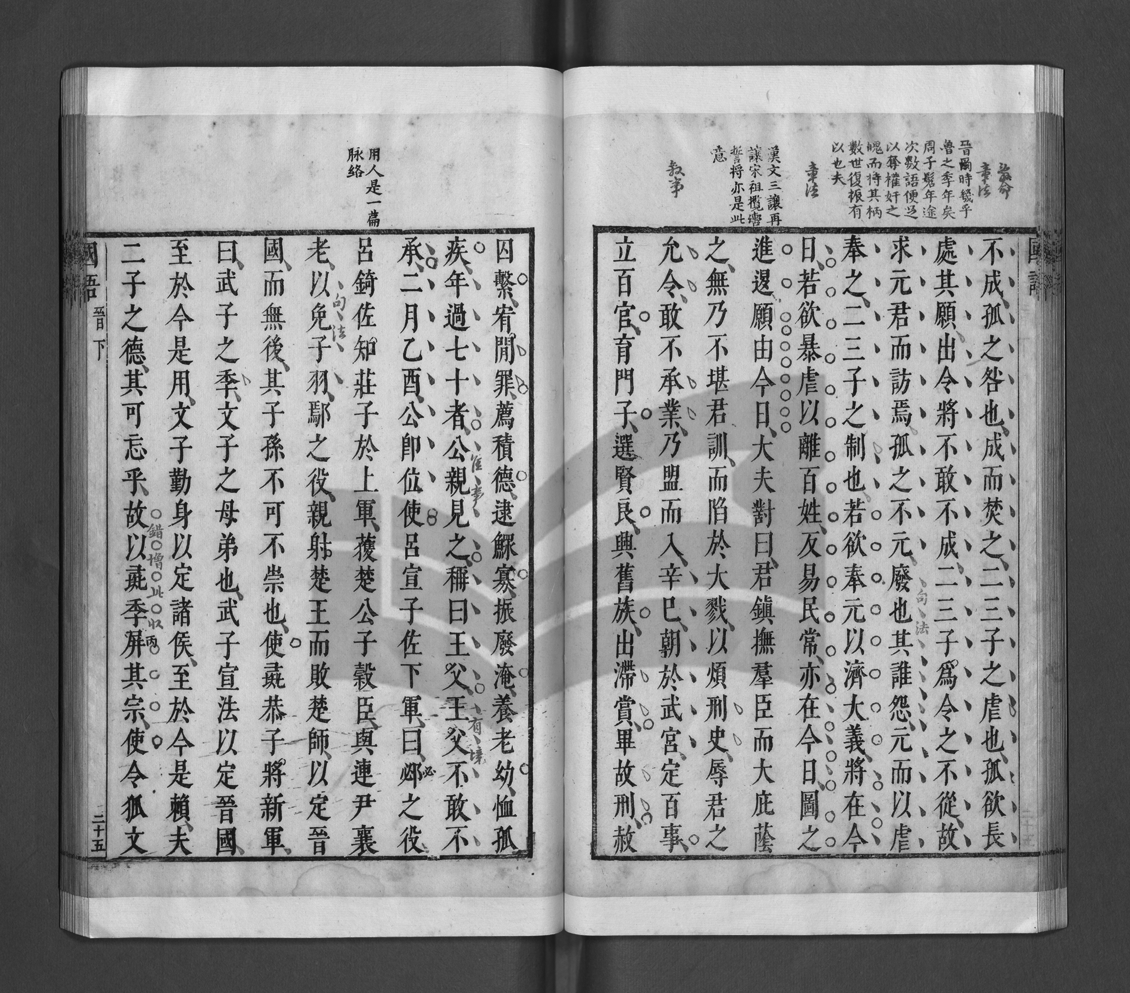 國語
不成孤之咎也成而焚之二三子之虐也孤欲長
處其願出令將不敢不成二三子爲令之不從故
求元君而訪焉孤之不元廢也其誰怨元而以虐
奉之二三子之制也若欲奉元以濟大義將在今
日若欲暴虐以離百姓反易民常亦在今日圖之
進退願由今日大夫對曰君鎮撫羣臣而大庇蔭
之無乃不堪君訓而陷於大戮以煩刑史辱君之
允令敢不承業乃盟而入辛巳朝於武宮定百事
立百官育門子選賢良興舊族出滯賞畢故刑赦
章法
晉國時幾乎
魯之季年矣
周子髫年途
次數語便足
以奪權奸之
魄而持其柄
數世復振有
以也夫
章法
漢文三讓再
讓宋祖攬轡
誓將亦是此
意
敘事
句法
囚繫宥閒罪薦積德逮鰥寡振廢淹養老幼恤孤
疾年過七十者公親見之稱曰王父王父不敢不
承二月乙酉公卽位使呂宣子佐下軍曰邲之役
呂錡佐知莊子於上軍獲楚公子穀臣與連尹襄
老以免子羽鄢之役親射楚王而敗楚師以定晉
國而無後其子孫不可不崇也使彘恭子將新軍
曰武子之季文子之母弟也武子宣法以定晉國
至於今是用文子勤身以定諸侯至於今是賴夫
二子之德其可忘乎故以彘季屏其宗使令狐文
用人是一篇
脉絡
句法
國語
晉下
二十五